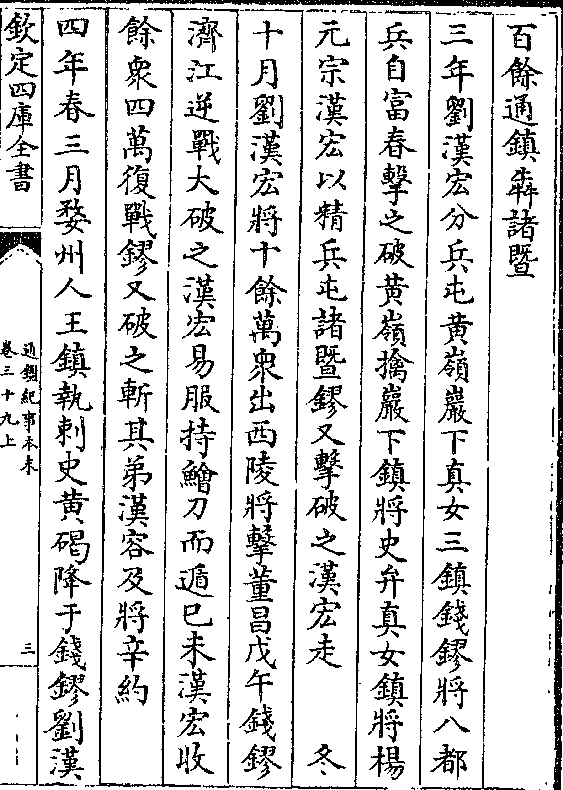 百餘通鎮犇諸暨
三年劉漢宏分兵屯黄嶺巖下真女三鎮錢鏐將八都
兵自富春擊之破黄嶺擒巖下鎮將史弁真女鎮將楊
元宗漢宏以精兵屯諸暨鏐又擊破之漢宏走 冬
十月劉漢宏將十餘萬衆出西陵將擊董昌戊午錢鏐
濟江逆戰大破之漢宏易服持鱠刀而遁已未漢宏收
餘衆四萬復戰鏐又破之斬其弟漢容及將辛約
四年春三月婺州人王鎮執刺史黄碣降于錢鏐劉漢
欽定四庫全書
通鑑紀事本末
卷三十九上
三